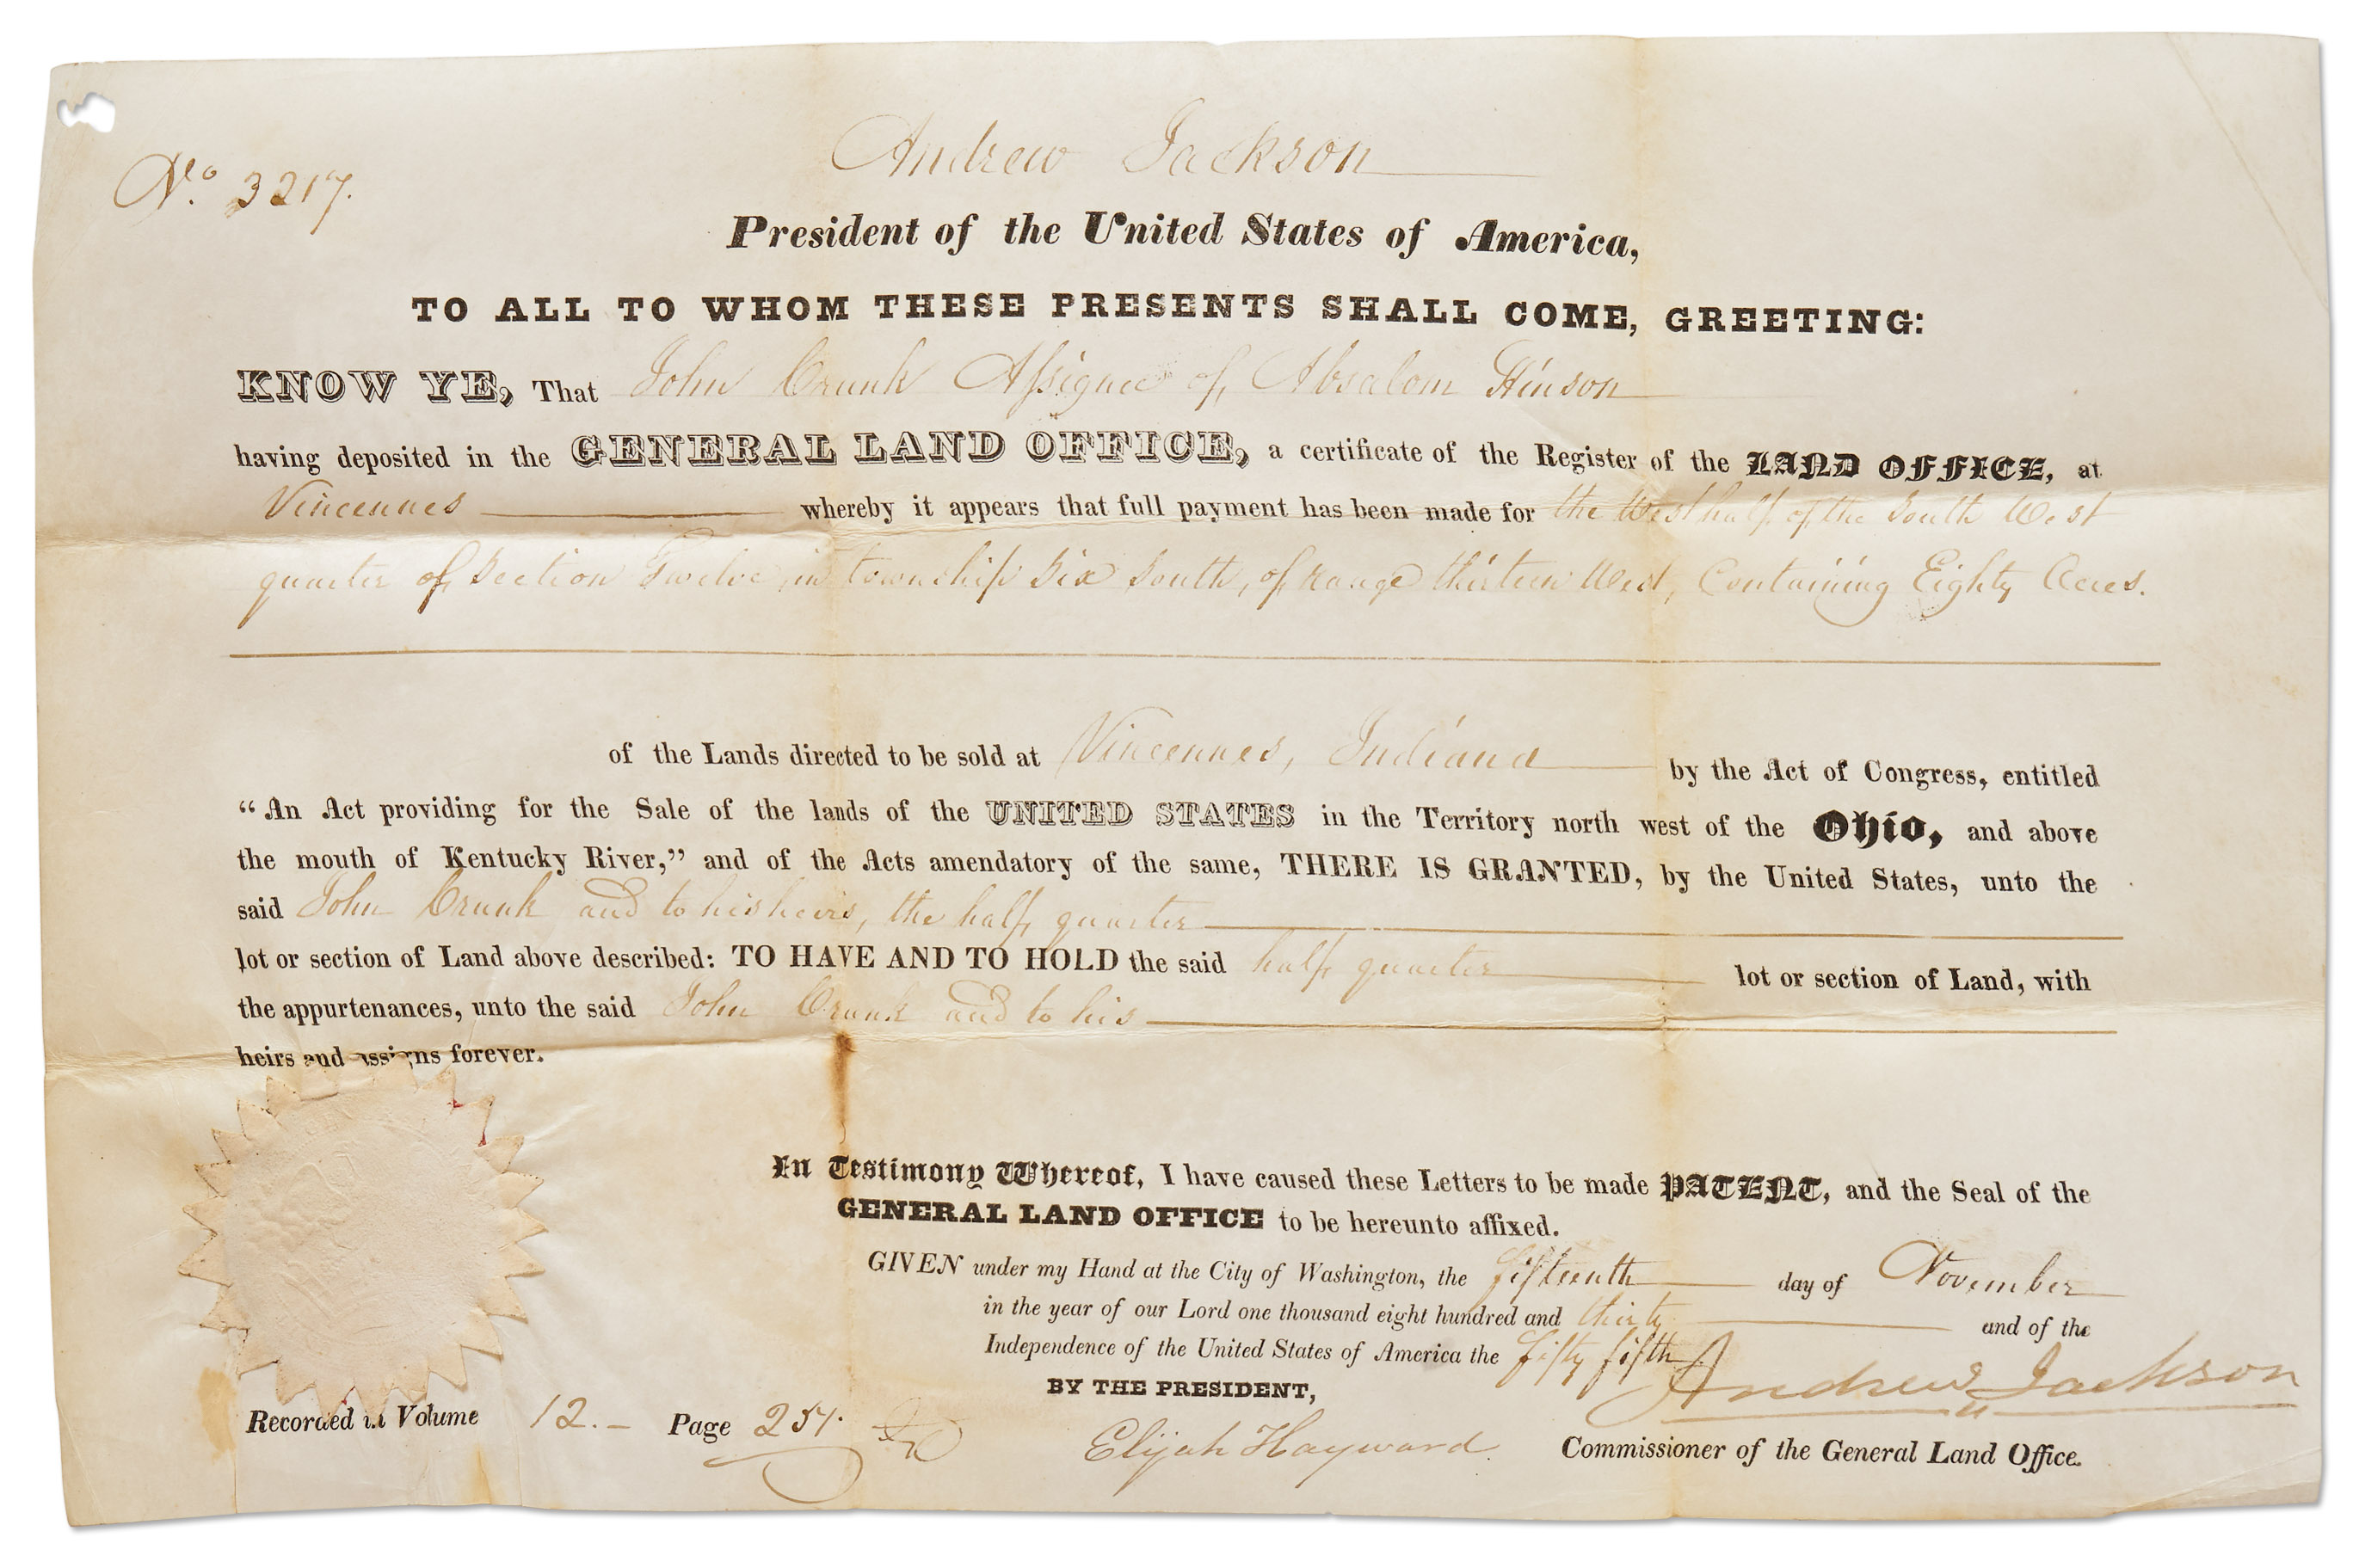 No. 3217.
Andrew Jackson
President of the United States of America,
TO ALL TO WHOM THESE PRESENTS SHALL COME, GREETING:
KNOW YE, That John Crunk Assignee of Absalom Hinson
having deposited in the GENERAL LAND OFFICE, a certificate of the Register of the LAND OFFICE, at
Vincennes whereby it appears that full payment has been made for the West half of the South West
quarter of Section Twelve, in township Six South, of range thirteen West, Containing Eighty Acres.
of the Lands directed to be sold at Vincennes, Indiana by the Act of Congress, entitled
“An Act providing for the Sale of the lands of the UNITED STATES in the Territory north west of the Ohio, and above
the mouth of Kentucky River,” and of the Acts amendatory of the same, THERE IS GRANTED, by the United States, unto the
said John Crunk and to his heirs, the half quarter
lot or section of Land above described: TO HAVE AND TO HOLD the said half quarter lot or section of Land, with
the appurtenances, unto the said John Crunk and to his
heirs and assigns forever.
In Testimony Whereof, I have caused these Letters to be made PATENT, and the Seal of the
GENERAL LAND OFFICE to be hereunto affixed.
GIVEN under my Hand at the City of Washington, the fifteenth day of November
in the year of our Lord one thousand eight hundred and thirty and of the
Independence of the United States of America the fifty fifth
BY THE PRESIDENT, Andrew Jackson
Recorded in Volume 12. Page 257.
Elijah Hayward Commissioner of the General Land Office.